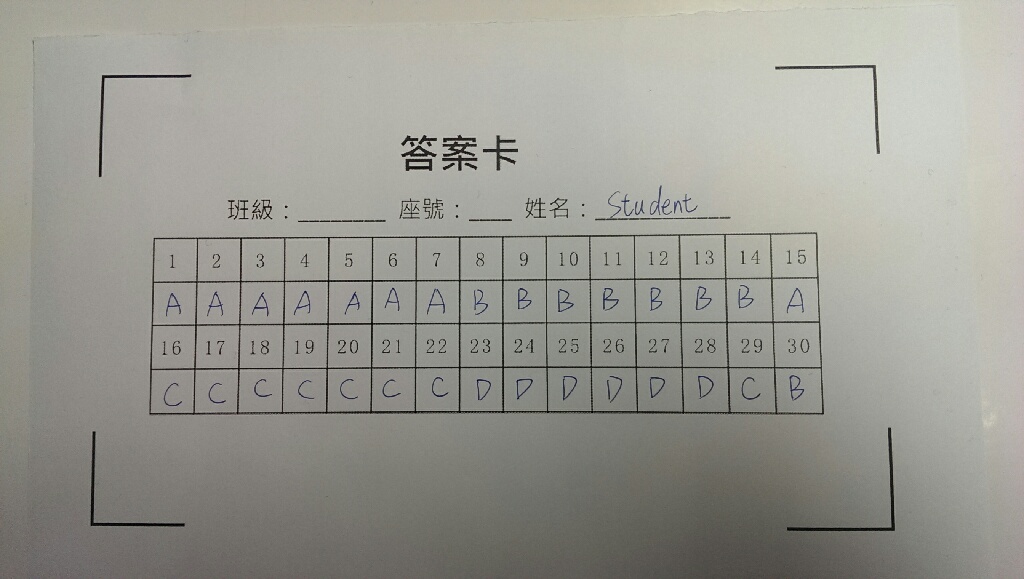 答案卡
班級：________ 座號：____ 姓名：Student
1 2 3 4 5 6 7 8 9 10 11 12 13 14 15
A A A A A A A B B B B B B B A
16 17 18 19 20 21 22 23 24 25 26 27 28 29 30
C C C C C C C D D D D D D C B